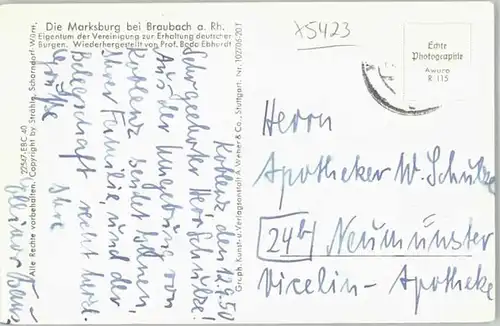 Die Marksburg bei Braubach a. Rh.
Eigentum der Vereinigung zur Erhaltung deutscher
Burgen. Wiederhergestellt von Prof. Bodo Ebhardt
x5423
Echte
Photographie
Awuro
R 115
Koblenz, den 12.9.50
Sehr geehrter Herr Schulze!
Aus der Umgebung von
Koblenz sendet Ihnen,
Ihrer Familie, und der
Belegschaft recht herzl.
Grüße
Ihre
Herrn
Apotheker W. Schulze
24b Neumünster
Vicelin - Apotheke
27547-EBC 40
Alle Rechte vorbehalten. Copyright by Strähle, Schorndorf-Würt.
Graph. Kunst- u. Verlagsanstalt A. Weber & Co., Stuttgart. Nr. 102/06/20 T